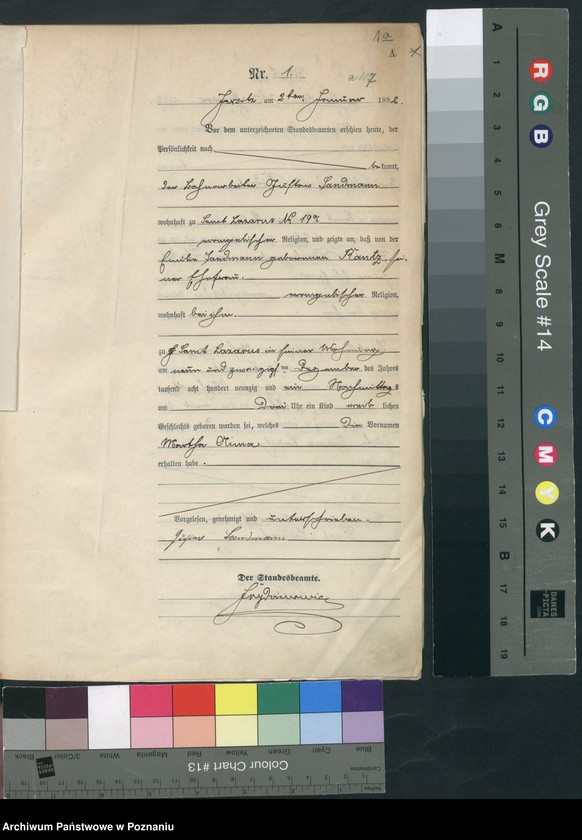 1a
A
Nr. 1.
Jersitz am 2ten Januar 1892.
Vor dem unterzeichneten Standesbeamten erschien heute, der
Persönlichkeit nach
bekannt,
der Bahnarbeiter Gustav Sandmann
wohnhaft zu Sanct Lazarus No 19a
evangelischer Religion, und zeigte an, daß von der
Emilie Sandmann geborenen Kantz, sei-
ner Ehefrau.
evangelischer Religion,
wohnhaft bei ihm.
zu Sanct Lazarus in seiner Wohnung
am neun und zwanzigsten Dezember des Jahres
tausend acht hundert neunzig und ein Nachmittags
um Drei Uhr ein Kind weib lichen
Geschlechts geboren worden sei, welches Die Vornamen
Martha Anna.
erhalten habe.
Vorgelesen, genehmigt und unterschrieben.
Gustav Sandmann
Der Standesbeamte.
Grey Scale #14
A 1 2 3 4 5 6 M 8 9 10 11 12 13 14 15 B 17 18 19
R G B
C M Y K
DANES
PICTA
Colour Chart #13
Blue Cyan Green Yellow Red Magenta White 3/Color Black
Archiwum Państwowe w Poznaniu